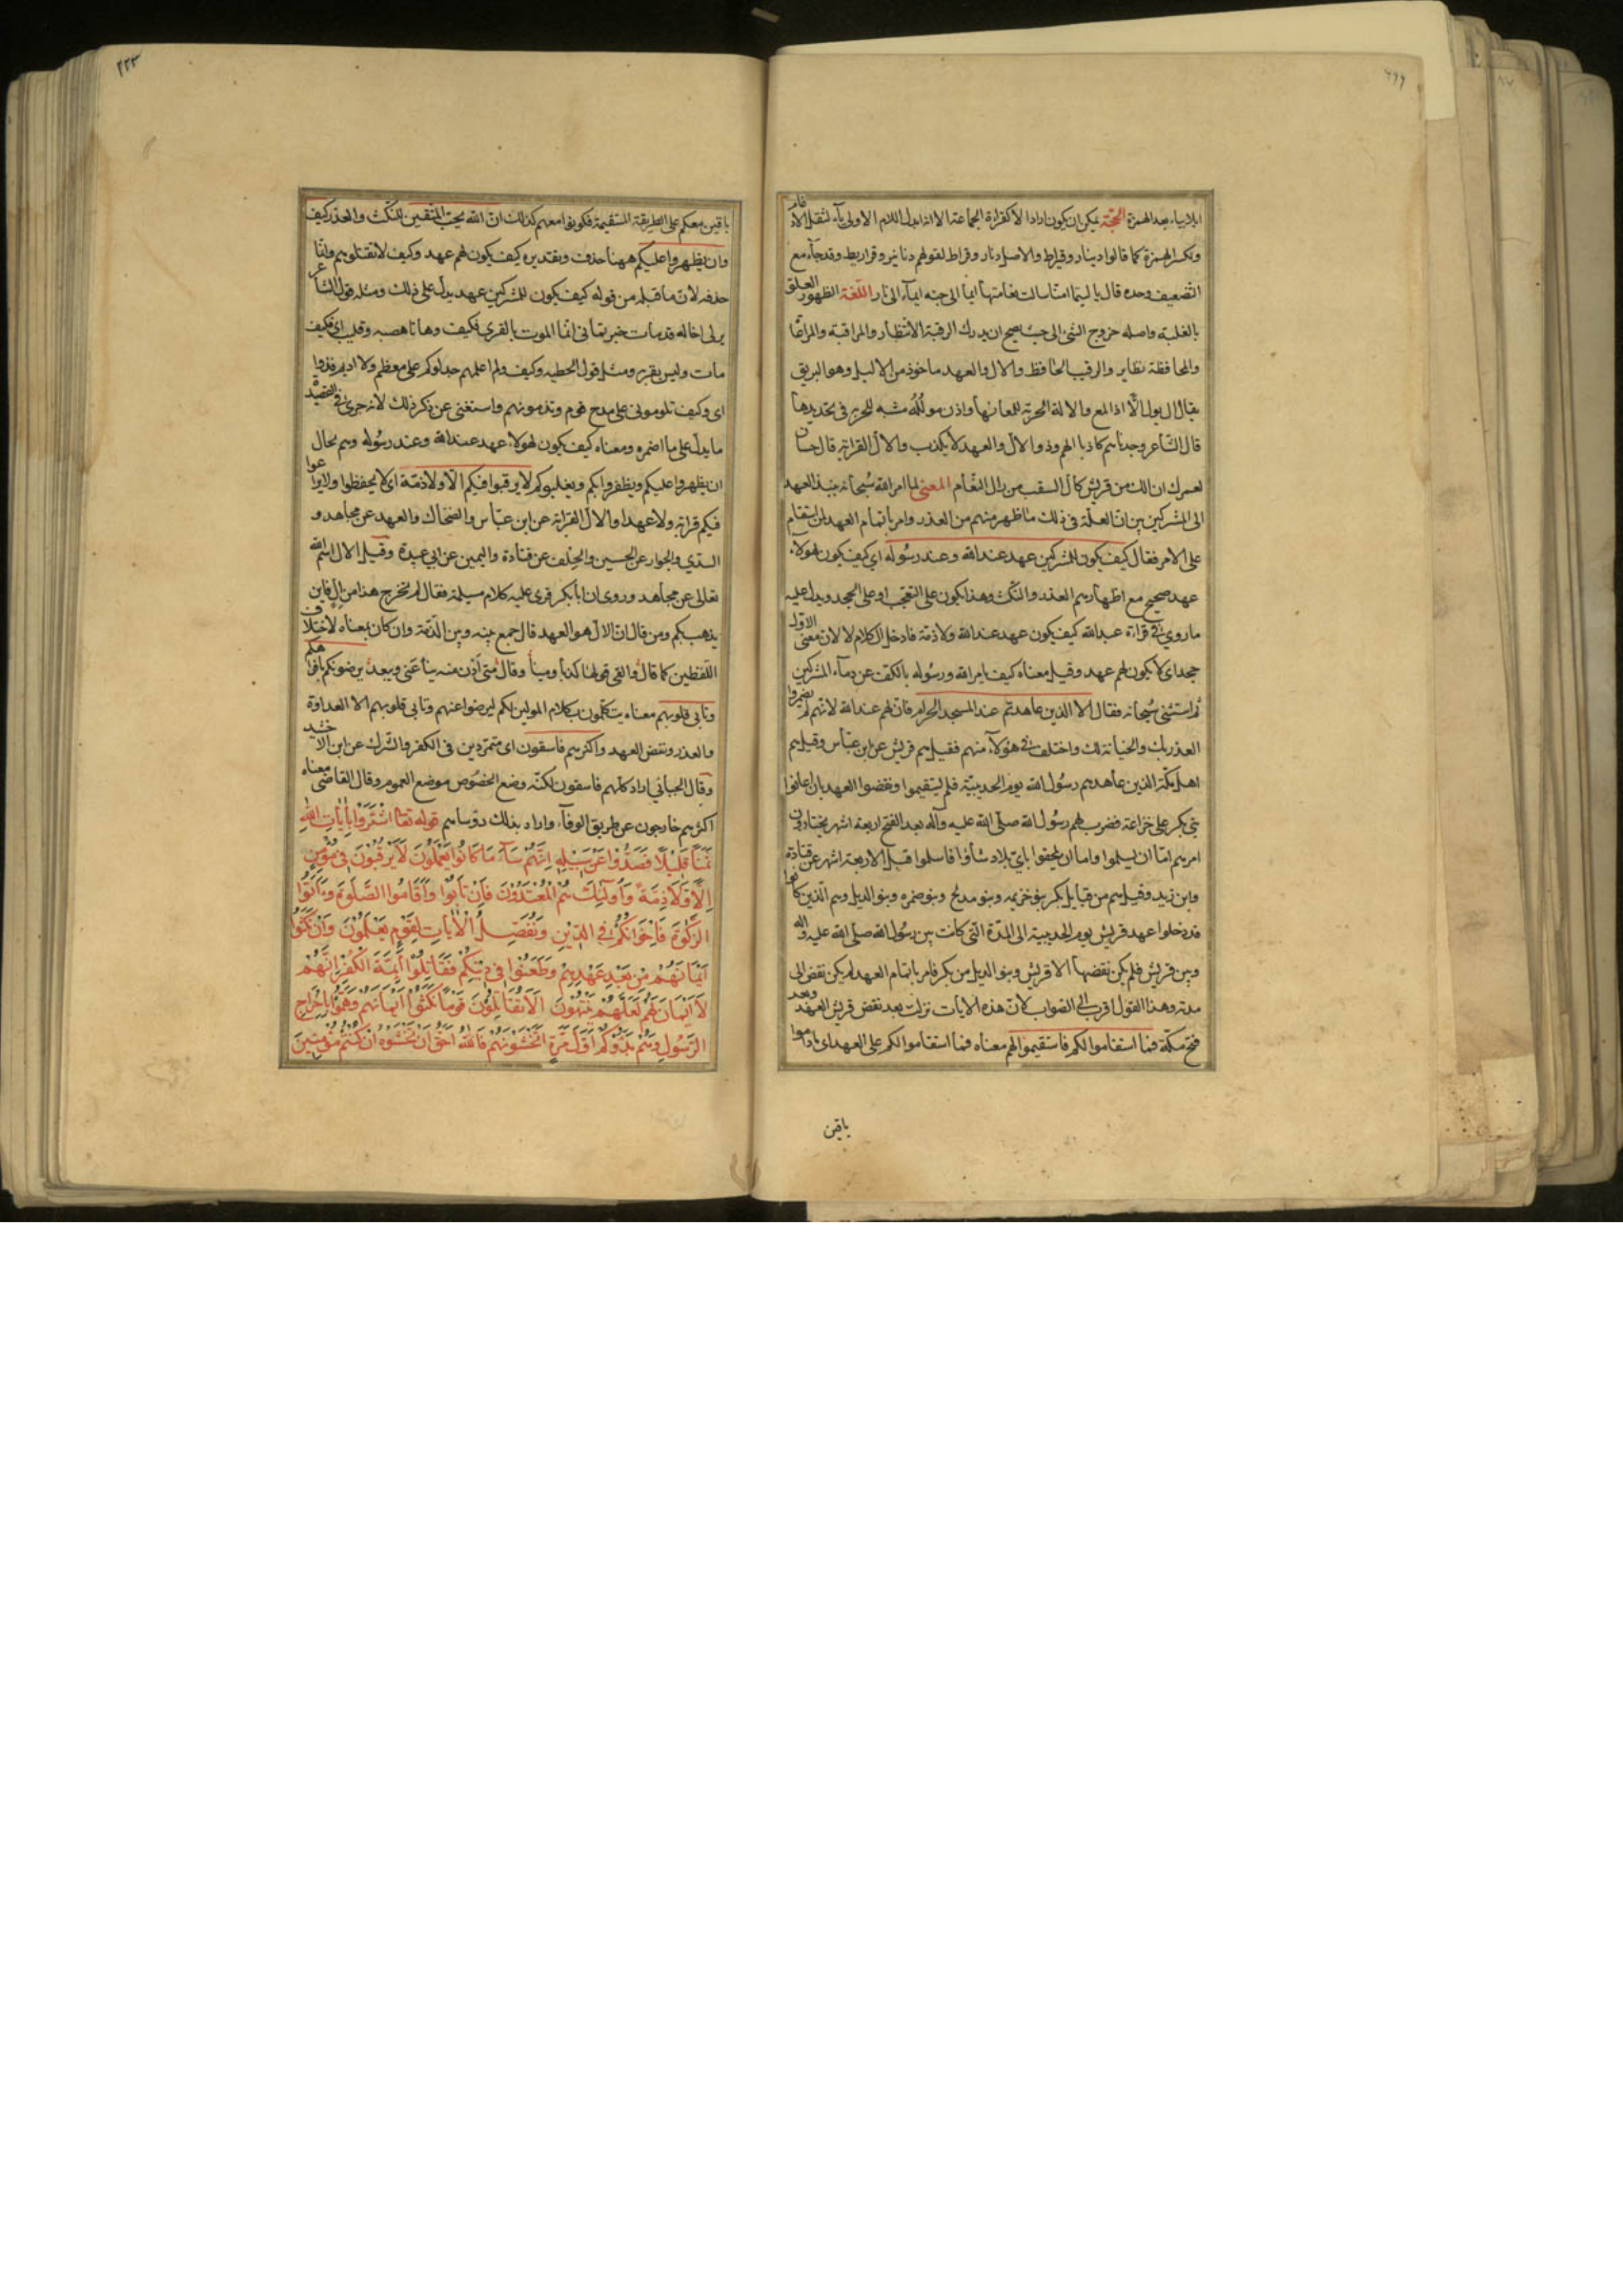 ايلا بياء بعد الهمزة الحجة يمكن ان يكون اراد الا كقراءة الجماعة الا انه ابدل اللام الاولى ياء لثقل الادغام
وكسر الهمزة كما قالوا دينار وقيراط والاصل دنار وقراط لقولهم دنانير وقراريط وقد جاء مع
التضعيف وحده قال يا ليتما امنا سالت نعامتها ايما الى جنة ايماء الى نار اللغة الظهور العلو
بالغلبة واصله خروج الشئ الى حيث يصح ان يدرك الرقبة الانتظار والمراقبة والمراعا
والمحافظة نظاير والرقيب الحافظ والال والعهد ماخوذ من الاليل وهو البريق
يقال ال يول الّا اذا لمع والالة الحربة للمعانها واذن مولّلة مشبه للحربة في تحديدها
قال الشاعر وجدناهم كاذبا الهم وذو الال والعهد لا يكذب والال القرابة قال حسان
لعمرك ان الك من قريش كال السقب من رال النعام المعنى لما امر الله سبحانه بنبذ العهد
الى المشركين بين ان العلة في ذلك ما ظهر منهم من الغدر وامر باتمام العهد لمن استقام
على الامر فقال كيف يكون للمشركين عهد عند الله وعند رسوله اي كيف يكون لهولاء
عهد صحيح مع اظهارهم الغدر والنكث وهذا يكون على التعجب او على الجحد ويدل عليه
ما روي في قراءة عبدالله كيف يكون عهد عند الله ولا ذمة فادخل الكلام لا لان معنى الاول
جحد اي لا يكون لهم عهد وقيل معناه كيف يامر الله ورسوله بالكف عن دماء المشركين
ثم استثنى سبحانه فقال الا الذين عاهدتم عند المسجد الحرام فان لهم عند الله لانهم لم يضمروا
الغدر بك والخيانة لك واختلف في هؤلاء منهم فقيل هم قريش عن ابن عباس وقيل هم
اهل مكة الذين عاهدهم رسول الله يوم الحديبية فلم يستقيموا ونقضوا العهد بان اعانوا
بني بكر على خزاعة فضرب لهم رسول الله صلى الله عليه وآله بعد الفتح اربعة اشهر يختارون
امرهم اما ان يسلموا واما ان يلحقوا باي بلاد شاؤا فاسلموا قبل الاربعة اشهر عن قتادة
وابن زيد وقيل هم من قبايل بكر بنو خزيمه وبنو مدلج وبنو ضمره وبنو الديل وهم الذين كانوا
قد دخلوا عهد قريش يوم الحديبية الى المدة التي كانت بين رسول الله صلى الله عليه واله
وبين قريش فلم يكن نقضها الا قريش وبنو الديل من بكر فامر باتمام العهد لم يكن نقض الى
مدته وهذا القول اقرب الى الصواب لان هذه الايات نزلت بعد نقض قريش العهد وبعد
فتح مكة فما استقاموا لكم فاستقيموا لهم معناه فما استقاموا لكم على العهد اي ما داموا
باقين
٢٢٣
باقين معكم على الطريقة المستقيمة فكونوا معهم كذلك ان الله يحب المتقين للنكث والغدر كيف
وان يظهروا عليكم ههنا حذف وتقديره كيف يكون لهم عهد وكيف لا تقتلوهم وانما
حذفه لان ما قبله من قوله كيف يكون للمشركين عهد يدل على ذلك ومثله قول الشاعر
مات وليس بقرية ومثله قول الحطيه وكيف ولم اعلمهم خذلوكم على معظم ولا اديمكم قدوا
اي وكيف تلوموني على مدح قوم وتذمونهم واستغنى عن ذكر ذلك لانه جرى في القصيدة
ما يدل على ما اضمره ومعناه كيف يكون لهولاء عهد عند الله وعند رسوله وهم بحال
ان يظهروا عليكم ويظفروا بكم ويغلبوكم لا يرقبوا فيكم الّا ولا ذمة اي لا يحفظوا ولا يراعوا
فيكم قرابة ولا عهدا والال القرابة عن ابن عباس والضحاك والعهد عن مجاهد و
السدي والجوار عن الحسن والحلف عن قتادة واليمين عن ابي عبيدة وقيل الال اسم الله
تعالى عن مجاهد وروى ان ابا بكر قرى عليه كلام مسيلمة فقال لم يخرج هذا من ال فاين
يذهب بكم ومن قال ان الال هو العهد قال جمع بينه وبين الذمة وان كان بمعناه لاختلاف
اللفظين كما قال والفى قولها كذبا ومينا وقال متى ادن منه ينا عني ويبعد يرضونكم بافواهكم
وتابى قلوبهم معناه يتكلمون بكلام المولين لكم ليرضوا عنهم وتابى قلوبهم الا العداوة
والغدر ونقض العهد واكثرهم فاسقون اي متمردين في الكفر والشرك عن ابن الاخشيد
وقال الجبائي اراد كلهم فاسقون لكنه وضع الخصوص موضع العموم وقال القاضي معناه
اكثرهم خارجون عن طريق الوفاء واراد بذلك رؤساهم قوله تعا اشْتَرَوْا بِاٰيَاتِ اللّٰهِ
ثَمَنًا قَلِيْلًا فَصَدُّوْا عَنْ سَبِيْلِهِ اِنَّهُمْ سَآءَ مَا كَانُوا يَعْمَلُوْنَ لَا يَرْقُبُوْنَ فِي مُؤْمِنٍ
اِلًّا وَلَا ذِمَّةً وَاُولٰئِكَ هُمُ الْمُعْتَدُوْنَ فَاِنْ تَابُوْا وَاَقَامُوا الصَّلٰوةَ وَءَاتَوُا
الزَّكٰوةَ فَاِخْوَانُكُمْ فِي الدِّيْنِ وَنُفَصِّلُ الْاٰيَاتِ لِقَوْمٍ يَعْلَمُوْنَ وَاِنْ نَكَثُوْا
اَيْمَانَهُمْ مِنْ بَعْدِ عَهْدِهِمْ وَطَعَنُوْا فِي دِيْنِكُمْ فَقَاتِلُوْا اَئِمَّةَ الْكُفْرِ اِنَّهُمْ
لَا اَيْمَانَ لَهُمْ لَعَلَّهُمْ يَنْتَهُوْنَ اَلَا تُقَاتِلُوْنَ قَوْمًا نَكَثُوْا اَيْمَانَهُمْ وَهَمُّوْا بِاِخْرَاجِ
الرَّسُوْلِ وَهُمْ بَدَؤُكُمْ اَوَّلَ مَرَّةٍ اَتَخْشَوْنَهُمْ فَاللّٰهُ اَحَقُّ اَنْ تَخْشَوْهُ اِنْ كُنْتُمْ مُؤْمِنِيْنَ